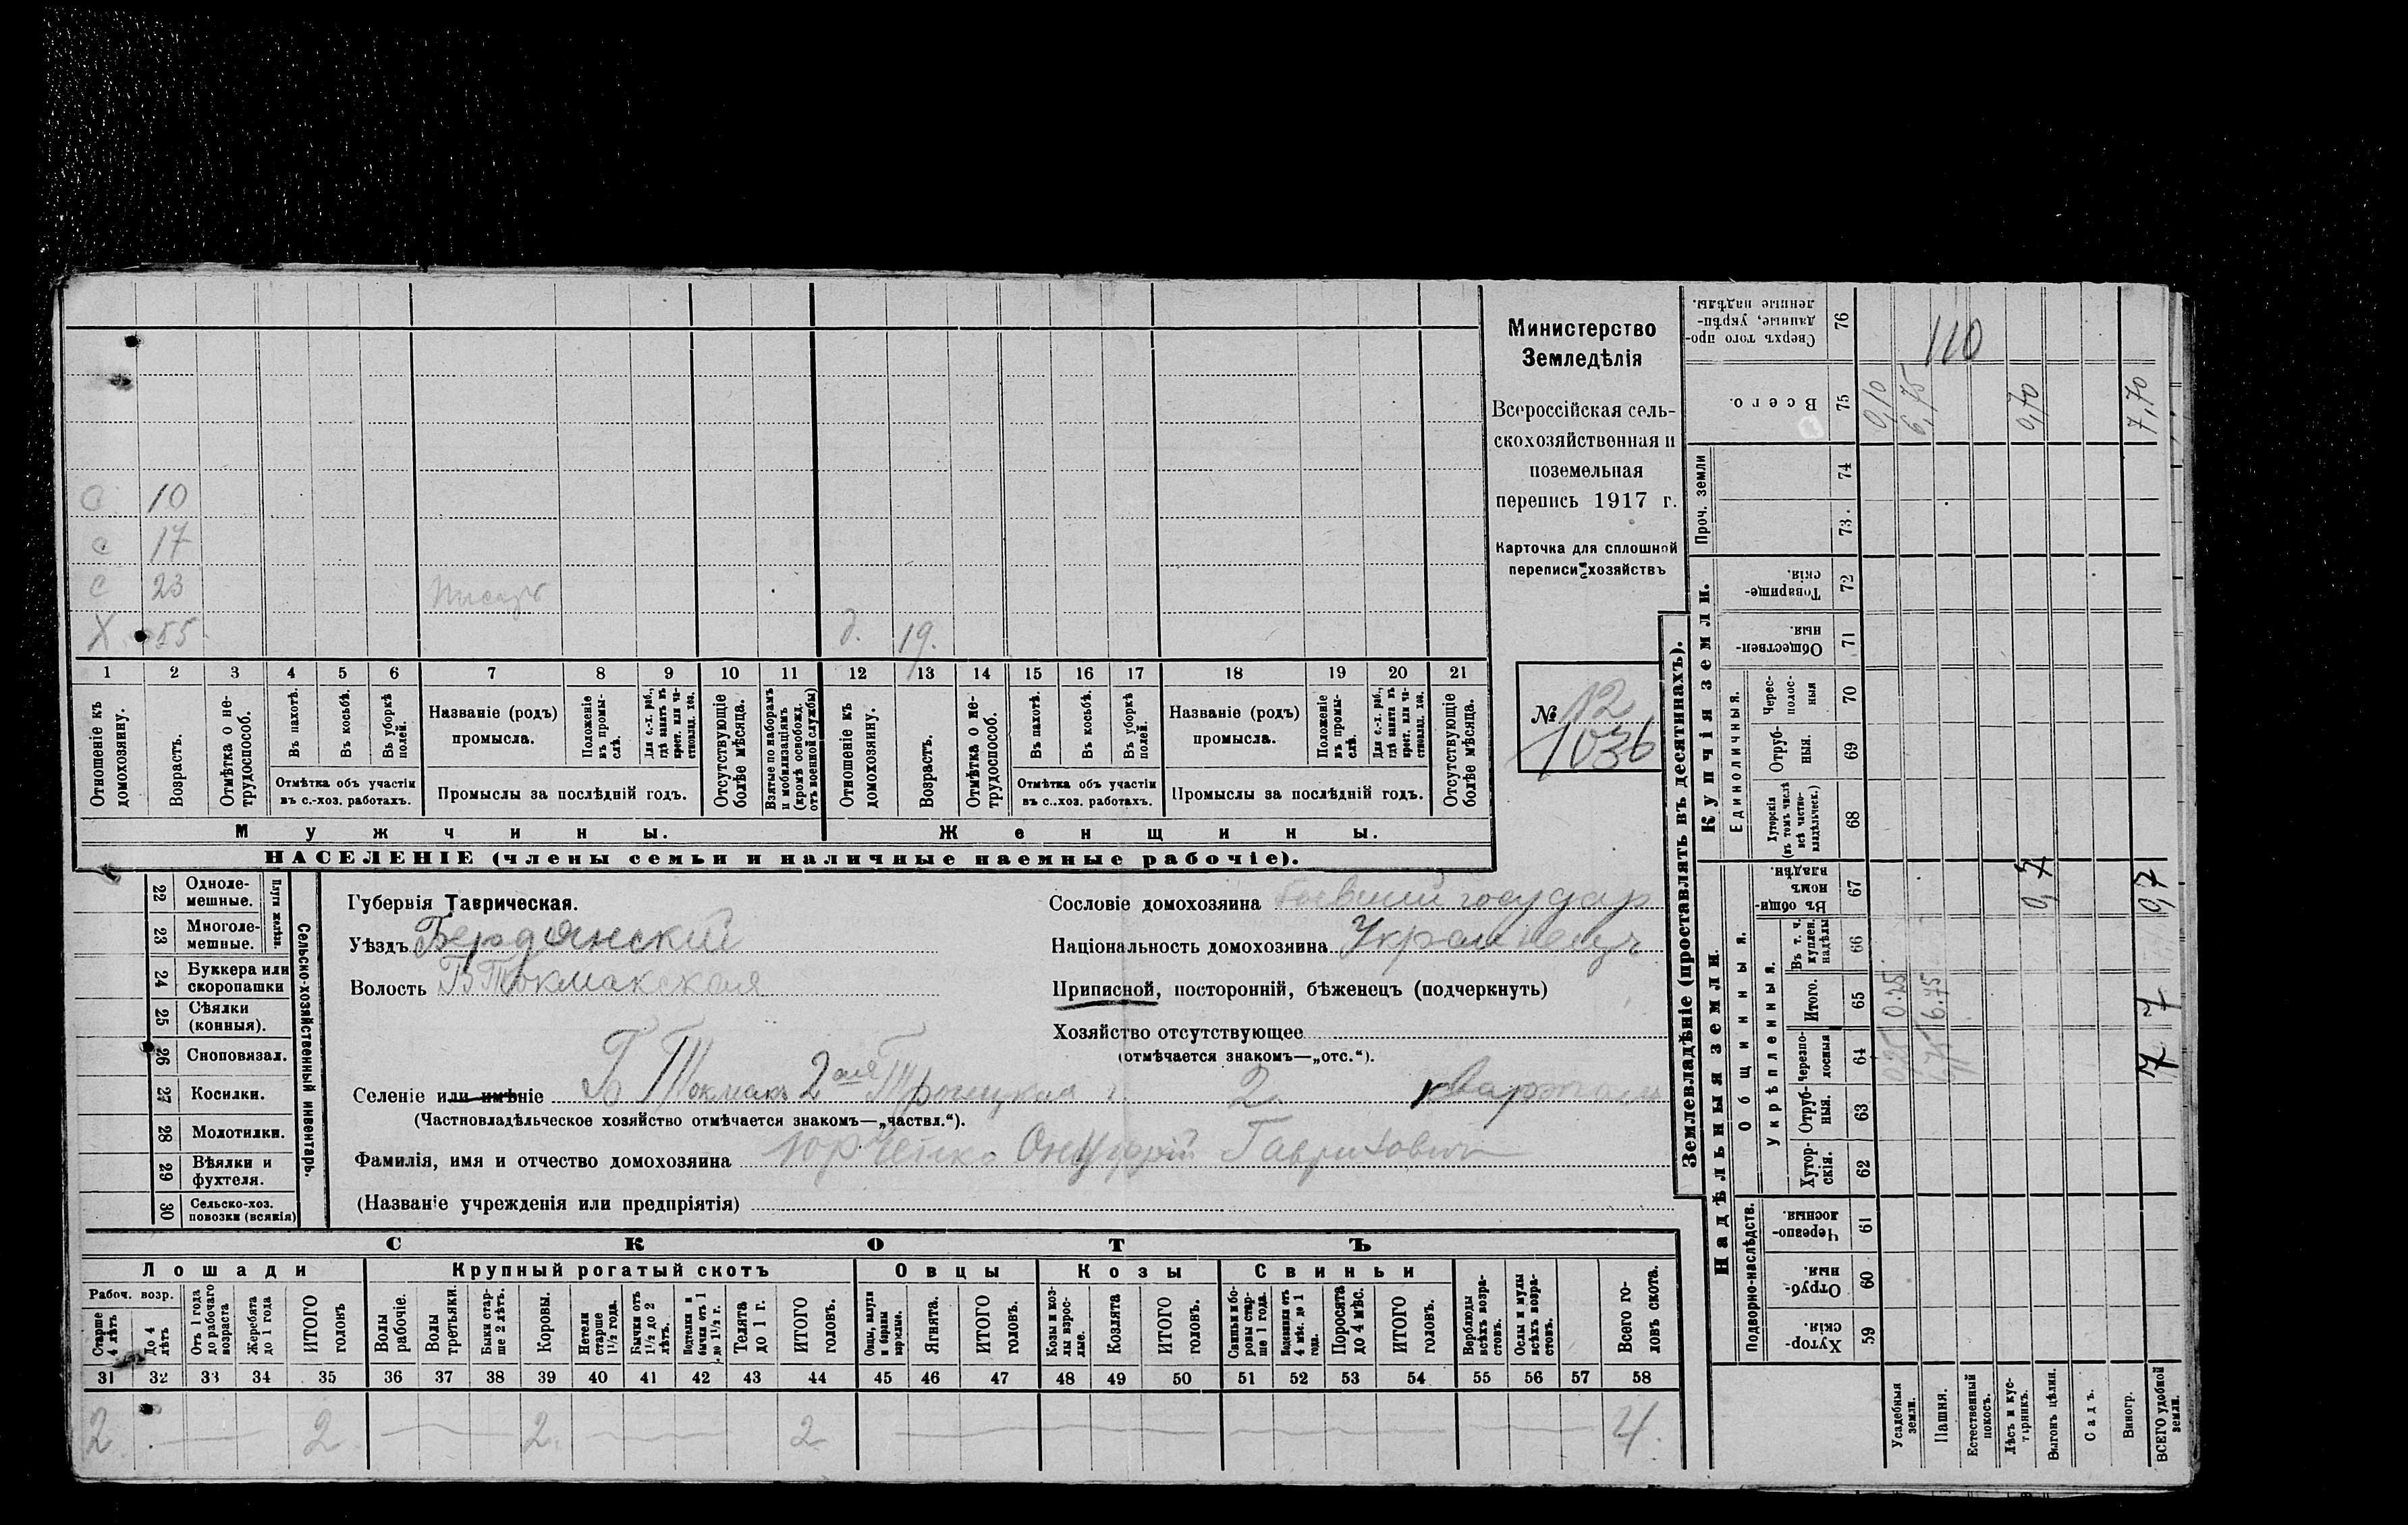 С 10
с 17
с 23 писарь
Х 55 д. 19.
1 2 3 4 5 6 7 8 9 10 11 12 13 14 15 16 17 18 19 20 21
Отношеніе къ домохозяину.
Возрастъ.
Отмѣтка о не-трудоспособ.
Въ пахотѣ.
Въ косьбѣ.
Въ уборкѣ полей.
Отмѣтка объ участіи
въ с.-хоз. работахъ.
Названіе (родъ)
промысла.
Положеніе въ промы-слѣ.
Для с.-х. раб., гдѣ занятъ въ крест. или ча-стновлад. хоз.
Промыслы за послѣдній годъ.
Отсутствующіе болѣе мѣсяца.
Взятые по наборамъ и мобилизаціямъ (кромѣ освобожд. отъ военной службы)
Отношеніе къ домохозяину.
Возрастъ.
Отмѣтка о не-трудоспособ.
Въ пахотѣ.
Въ косьбѣ.
Въ уборкѣ полей.
Отмѣтка объ участіи
въ с..хоз. работахъ.
Названіе (родъ)
промысла.
Положеніе въ промы-слѣ.
Для с.-х. раб., гдѣ занята въ крест. или ча-стновлад. хоз.
Промыслы за послѣдній годъ.
Отсутствующіе болѣе мѣсяца.
Мужчины. Женщины.
НАСЕЛЕНІЕ (члены семьи и наличные наемные рабочіе).
Министерство
Земледѣлія
Всероссійская сель-
скохозяйственная и
поземельная
перепись 1917 г.
Карточка для сплошной
переписи хозяйствъ
№ 12
1036
22 Одноле-мешные.
23 Многоле-мешные.
Плуги желѣз.
24 Буккера или скоропашки
25 Сѣялки (конныя).
26 Сноповязал.
27 Косилки.
28 Молотилки.
29 Вѣялки и фухтеля.
30 Сельско-хоз. повозки (всякія)
Сельско-хозяйственный инвентарь.
Губернія Таврическая.
Уѣздъ Бердянскій
Волость Б Токмакская
Сословіе домохозяина бывший государ
Національность домохозяина Украинецъ
Приписной, посторонній, бѣженецъ (подчеркнуть)
Хозяйство отсутствующее
(отмѣчается знакомъ—„отс.“).
Селеніе или имѣніе Б Токмакъ 2ая Троицкая 2 квартал
(Частновладѣльческое хозяйство отмѣчается знакомъ—„частвл.“).
Фамилія, имя и отчество домохозяина Юрченко Онуфрій Гаврилович
(Названіе учрежденія или предпріятія)
СКОТЪ
Лошади Крупный рогатый скотъ Овцы Козы Свиньи
Рабоч. возр.
Старше 4 лѣтъ
До 4 лѣтъ
Отъ 1 года до рабочаго возраста
Жеребята до 1 года
ИТОГО головъ
Волы рабочіе.
Волы третьяки.
Быки стар-ше 2 лѣтъ.
Коровы.
Нетели старше 1½ года.
Бычки отъ 1½ до 2 лѣтъ.
Телята до 1 г.
ИТОГО головъ.
Ягнята.
ИТОГО головъ.
Козы и коз-лы взрос-лые.
Козлята
ИТОГО головъ.
Свиньи и бо-ровы стар-ше 1 года.
Поросята до 4 мѣс.
ИТОГО головъ.
Верблюды всѣхъ возра-стовъ.
Ослы и мулы всѣхъ возра-стовъ.
Всего го-ловъ скота.
31 32 33 34 35 36 37 38 39 40 41 42 43 44 45 46 47 48 49 50 51 52 53 54 55 56 57 58
2 2 2 2 4.
Землевладѣніе (проставлять въ десятинахъ).
Надѣльныя земли.
Купчія земли.
Проч. земли
Подворно-наслѣдств.
Общинныя.
Укрѣпленныя.
Единоличныя.
Хутор-скія. 59
Отруб-ныя. 60
Черезпо-лосныя. 61
Хутор-скія. 62
Отруб-ныя. 63
Черезпо-лосныя 64
Итого. 65
Въ т. ч. куплен. надѣлы 66
Въ общин-номъ владѣн. 67
Хуторскія (въ томъ числѣ всѣ частно-владѣльческ.) 68
Отруб-ныя. 69
Черес-полос-ныя 70
Обществен-ныя. 71
Товарище-скія. 72
73.
74
Всего. 75
Сверхъ того про-данные, укрѣп-ленные надѣлы. 76
Усадебныя земли. 0,25 0.25 0,10
Пашня. 6,75 6.75 6,75
110
Естественный покосъ.
Лѣсъ и кус-тарникъ.
Выгонъ цѣлин. 0,7 0,70
Садъ.
Виногр.
ВСЕГО удобной земли. 7 7 0,7 7,70